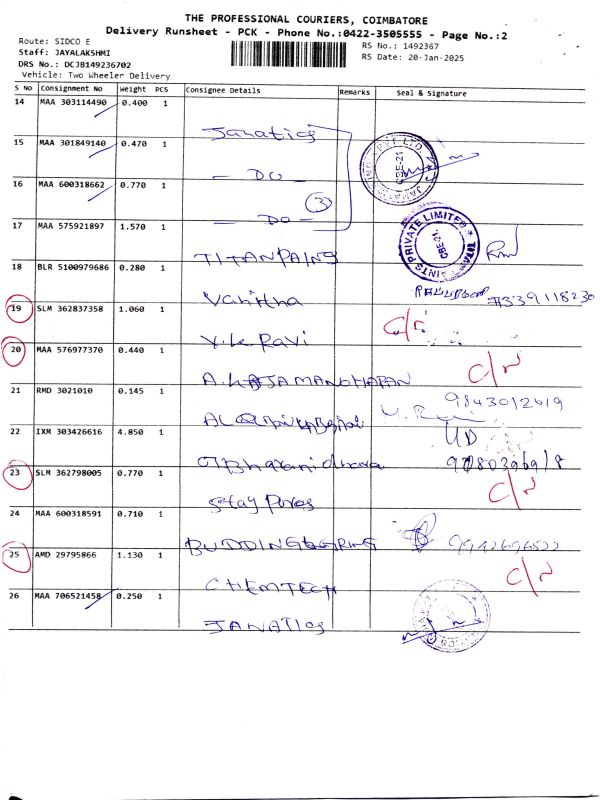 THE PROFESSIONAL COURIERS, COIMBATORE
Delivery Runsheet - PCK - Phone No.:0422-3505555 - Page No.:2
Route: SIDCO E
RS No.: 1492367
Staff: JAYALAKSHMI
RS Date: 20-Jan-2025
DRS No.: DCJB149236702
Vehicle: Two Wheeler Delivery
S No Consignment No Weight PCS Consignee Details Remarks Seal & Signature
14 MAA 303114490 0.400 1
Janatics
15 MAA 301849140 0.470 1
- DO -
16 MAA 600318662 0.770 1
3
- DO -
17 MAA 575921897 1.570 1
TITANPAINS
PRIVATE LIMITED
CBE-21.
18 BLR 5100979686 0.280 1
Vanitha
19 SLM 362837358 1.060 1
V.K. Ravi
20 MAA 576977370 0.440 1
C/N
21 RMD 3021010 0.145 1
9843012619
22 IXM 303426616 4.850 1
UD
23 SLM 362798005 0.770 1
C/N
24 MAA 600318591 0.710 1
25 AMD 29795866 1.130 1
C/N
CHEMTECH
26 MAA 706521458 0.250 1
JANATICS